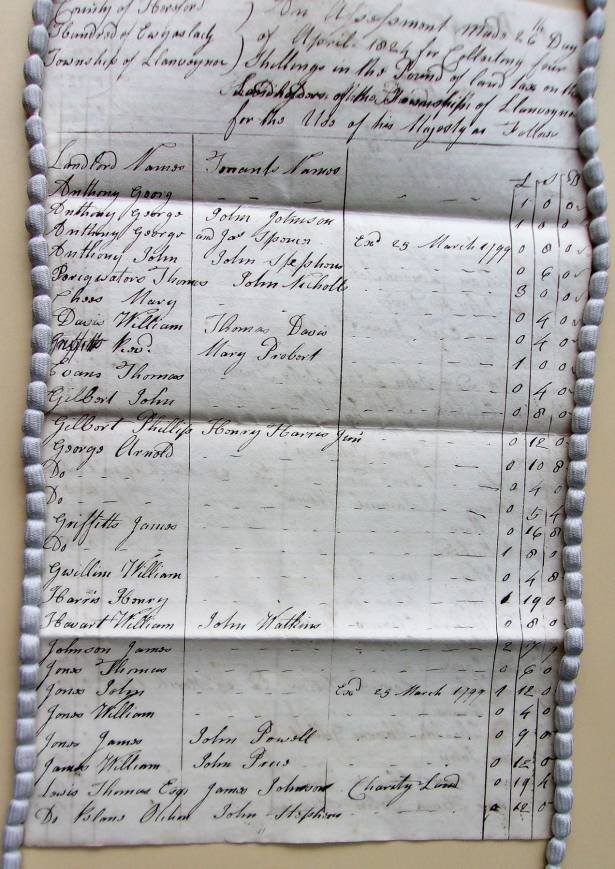 County of Hereford ) An Assessment Made 26th Day
Hundred of Ewyaslacy ) of April 1824 for Collecting four
Township of Llanveynoe ) Shillings in the Pound of land tax on the
Landholders of the Township of Llanveynoe
for the Use of his Majesty as Follow
Landlord Names Tenants Names £ S D
Anthony Georg 1 0 0
Anthony George John Johnson 1 0 0
Anthony George and Jas Spencer Exd 25 March 1799 0 8 0
Anthony John John Stephens 0 6 0
Thomas John Nicholls 3 0 0
Chees Mary 0 4 0
Davis William Thomas Davis 0 4 0
Griffith Revd. Mary Probert 1 0 0
Evans Thomas 0 4 0
Gilbert John 0 8 0
Gilbert Phillip Henry Harris Junr 0 12 0
George Arnold 0 10 8
Do 0 4 0
Do 0 5 4
Griffitts James 0 16 8
Do 1 8 0
Gwillim William 0 4 8
Harris Henry 1 19 0
Havart William John Watkins 0 8 0
Johnson James 2 7 9
Jones Thomas 0 6 0
Jones John Exd 25 March 1799 1 12 0
Jones William 0 4 0
Jones James John Powell 0 9 0
James William John Price 0 12 0
Lewis Thomas Esqr James Johnson Charity Land 0 19 4
Do John Stephens 12 0